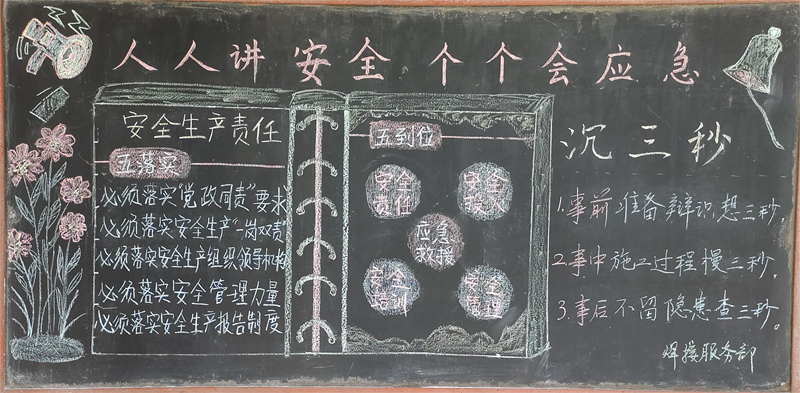 人人讲安全 个个会应急
安全生产责任
五落实
必须落实“党政同责”要求
必须落实安全生产“一岗双责”
必须落实安全生产组织领导机构
必须落实安全管理力量
必须落实安全生产报告制度
五到位
安全责任
安全投入
应急救援
安全培训
安全管理
沉三秒
1.事前准备辩识想三秒,
2.事中施工过程慢三秒,
3.事后不留隐患查三秒。
焊接服务部